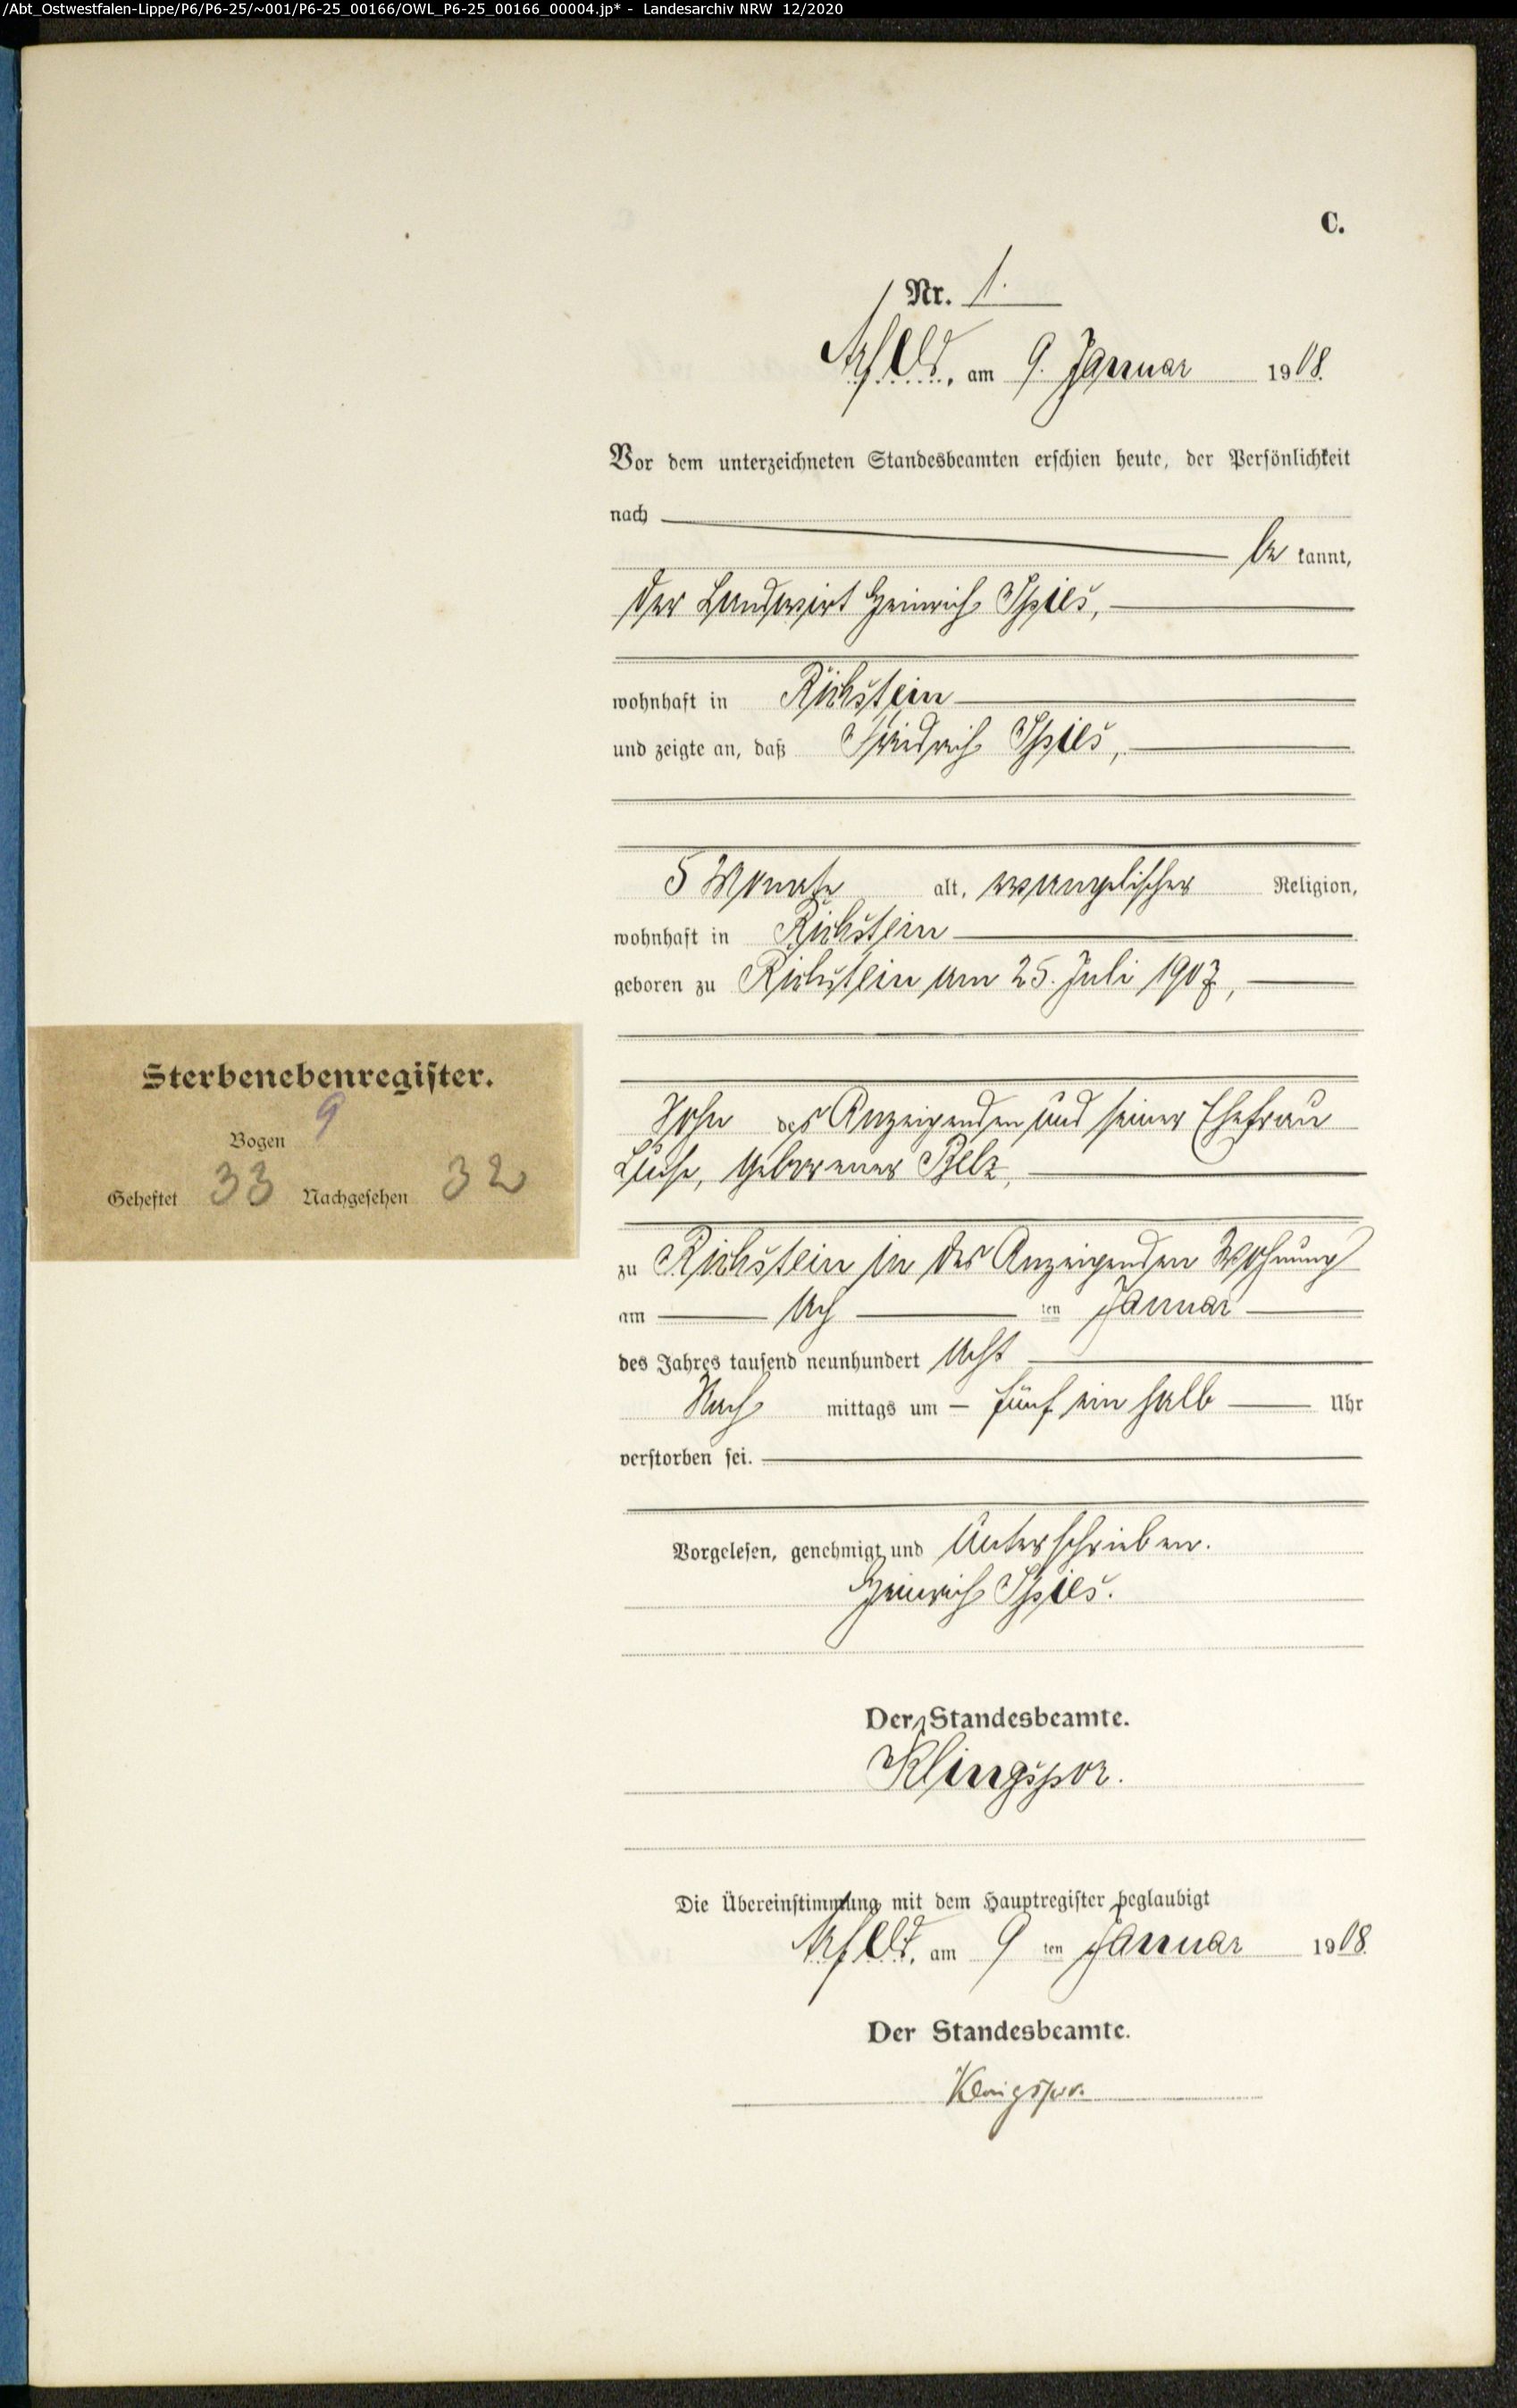 /Abt_Ostwestfalen-Lippe/P6/P6-25/~001/P6-25_00166/OWL_P6-25_00166_00004.jp* - Landesarchiv NRW 12/2020
C.
Nr. 1.
Arfeld, am 9. Januar 1908.
Vor dem unterzeichneten Standesbeamten erschien heute, der Persönlichkeit
nach
be kannt,
der Landwirt Heinrich Spies,
wohnhaft in Richstein
und zeigte an, daß Friedrich Spies,
5 Monate alt, evangelischer Religion,
wohnhaft in Richstein
geboren zu Richstein am 25. Juli 1907,
Sohn des Anzeigenden und seiner Ehefrau
Luise, geborener Belz,
zu Richstein in des Anzeigenden Wohnung
am ten Januar
des Jahres tausend neunhundert acht
Nach mittags um fünf ein halb Uhr
verstorben sei.
Vorgelesen, genehmigt und unterschrieben.
Heinrich Spies.
Der Standesbeamte.
Klingspor.
Die Übereinstimmung mit dem Hauptregister beglaubigt
Arfeld, am 9 ten Januar 1908.
Der Standesbeamte.
Klingspor.
Sterbenebenregister.
Bogen 9
Geheftet 33 Nachgesehen 32